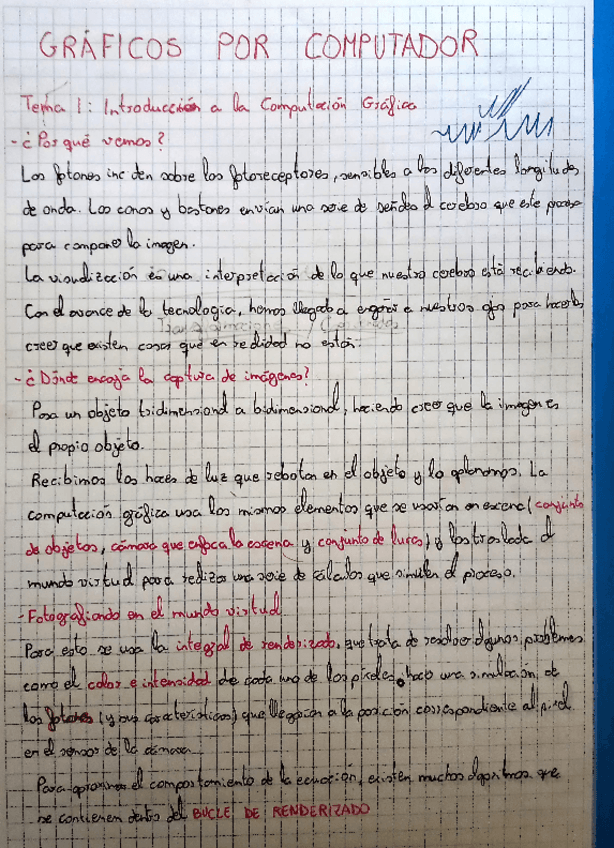 GRÁFICOS POR COMPUTADOR
Tema 1: Introducción a la Computación Gráfica
- ¿Por qué vemos?
Los fotones inciden sobre los fotoreceptores, sensibles a las diferentes longitudes
de onda. Los conos y bastones envían una serie de señales al cerebro que este procesa
para componer la imagen.
La visualización es una interpretación de lo que nuestro cerebro está recibiendo.
Con el avance de la tecnología, hemos llegado a engañar a nuestros ojos para hacerles
creer que existen cosas que en realidad no están.
- ¿Dónde encaja la captura de imágenes?
Pasa un objeto tridimensional a bidimensional, haciendo creer que la imagen es
el propio objeto.
Recibimos los haces de luz que rebotan en el objeto y lo aplanamos. La
computación gráfica usa los mismos elementos que se usarían en escena (conjunto
de objetos, cámara que enfoca la escena y conjunto de luces) y los traslada al
mundo virtual para realizar una serie de cálculos que simulen el proceso.
- Fotografiando en el mundo virtual
Para esto se usa la integral de renderizado, que trata de resolver algunos problemas
como el color e intensidad de cada uno de los píxeles, hace una simulación de
los fotones (y sus características) que llegarían a la posición correspondiente al píxel
en el sensor de la cámara.
Para aproximar el comportamiento de la ecuación, existen muchos algoritmos que
se contienen dentro del BUCLE DE RENDERIZADO